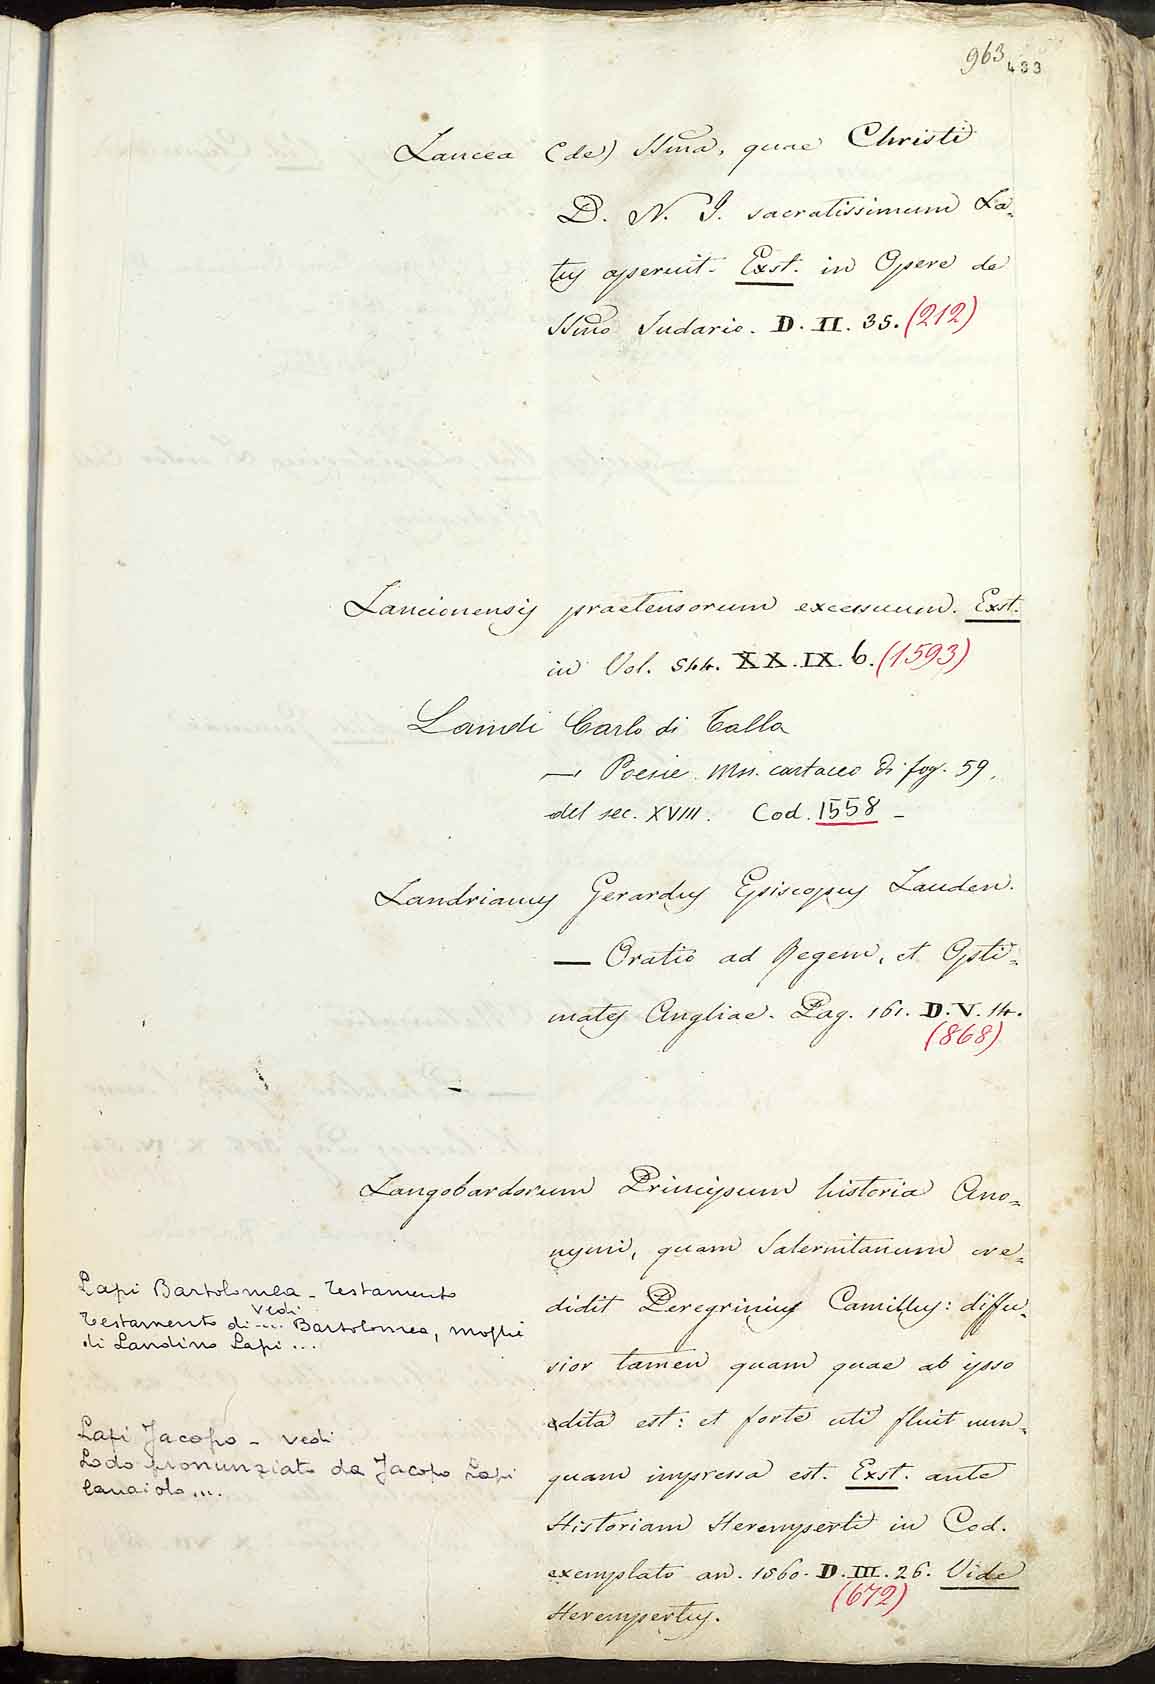 963
433
Lancea (de) SSma, quae Christi
D. N. J. sacratissimum La-
tus aperuit. Exst. in Opere de
SSmo Sudario. D. II. 35. (212)
Lancionensis praetensorum excessuum. Exst.
in Vol. S44. XX. IX. 6. (1593)
Landi Carlo di Talla
— Poesie. Mss. cartaceo di fog. 59,
del sec. XVIII. Cod. 1558 -
Landrianus Gerardus Episcopus Lauden.
— Oratio ad Regem, et Opti-
mates Angliae. Pag. 161. D. V. 14.
(868)
Langobardorum Principum historia Ano-
nymi, quam Salernitanum cre-
didit Peregrinius Camillus: diffu-
sior tamen quam quae ab ipso
edita est: et forte uti fluit num-
quam impressa est. Exst. ante
Historiam Heremperti in Cod.
exemplato an. 1560. D. III. 26. Vide
(672)
Herempertus.
Lapi Bartolomea - Testamento
vedi
Testamento di .... Bartolomea, moglie
di Landino Lapi ...
Lapi Jacopo - vedi
Lodo pronunziato da Jacopo Lapi
lanaiolo ...